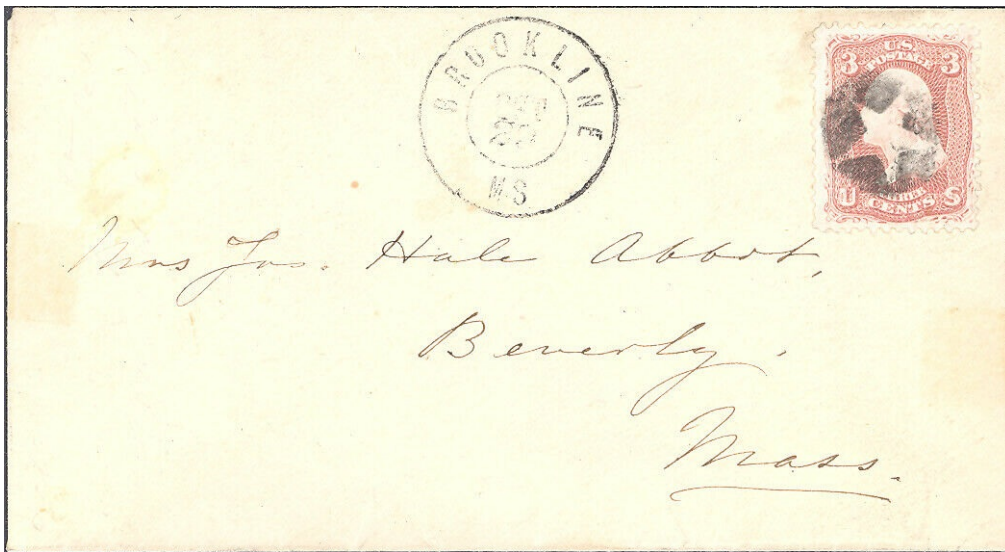 BROOKLINE
23
MS
U.S.
POSTAGE
3 3
U S
CENTS
Mrs Jos. Hale Abbot,
Beverly.
Mass.